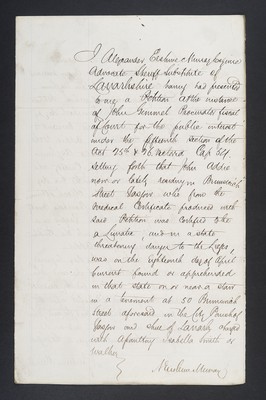 I Alexander Erskine Murray Esquire
Advocate Sheriff Substitute of
Lanarkshire having had presented
to me a Petition at the instance
of John Gemmel Procurator fiscal
of Court for the public interest
under the fifteenth section of the
Act 25th & 26 Victoria Cap 54.
setting forth that John Addie
now or lately residing in Brunswick
Street Glasgow who from the
Medical Certificate produced with
said Petition was certified to be
a Lunatic and in a state
threatening danger to the Lieges
was on the eighteenth day of April
Current found or apprehended
in that state on or near a stair
in a tenement at 50 Brunswick
Street aforesaid in the City Parish of
Glasgow and Shire of Lanark charged
with Assaulting Isabella Smith or
A Erskine Murray